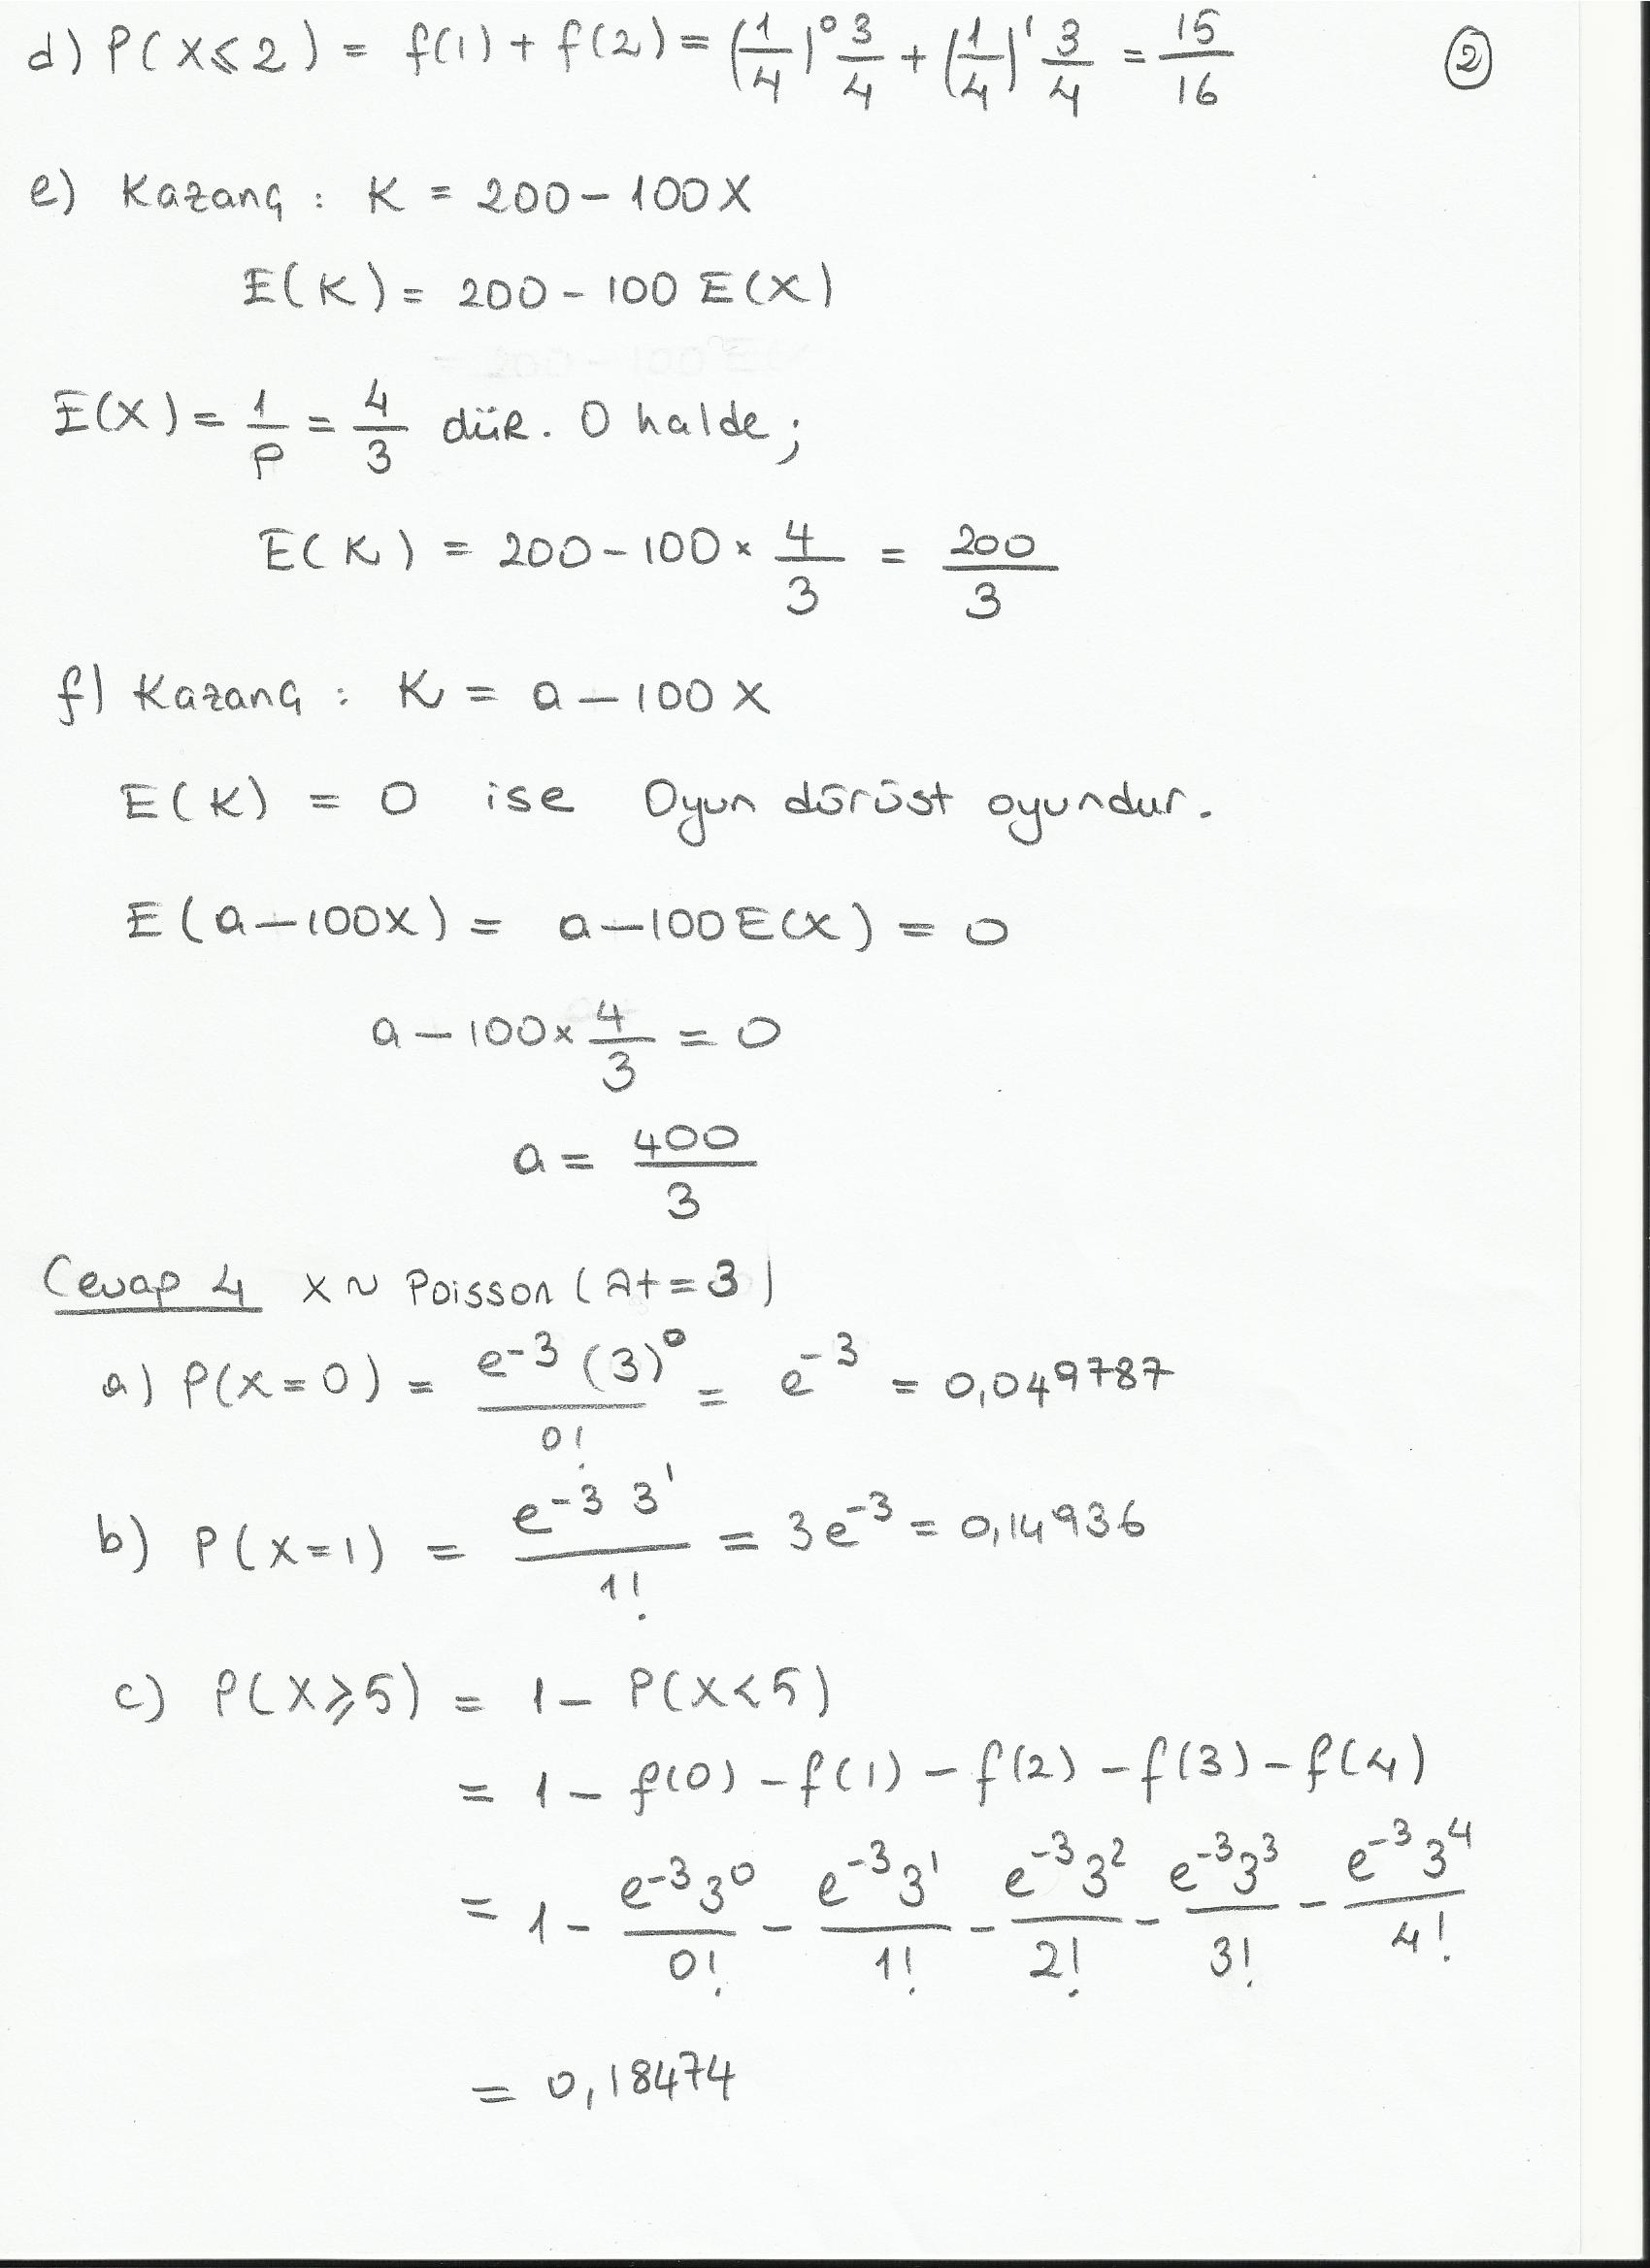 d) P(X⩽2) = f(1) + f(2) = (1/4)^0 3/4 + (1/4)^1 3/4 = 15/16 ②
e) Kazanç : K = 200 - 100X
E(K) = 200 - 100 E(X)
E(X) = 1/p = 4/3 dür. O halde;
E(K) = 200 - 100 × 4/3 = 200/3
f) Kazanç : K = a - 100X
E(K) = 0 ise Oyun dürüst oyundur.
E(a - 100X) = a - 100E(X) = 0
a - 100 × 4/3 = 0
a = 400/3
Cevap 4 X ~ Poisson (λt = 3)
a) P(X=0) = e^-3 (3)^0 / 0! = e^-3 = 0,049787
b) P(X=1) = e^-3 3^1 / 1! = 3e^-3 = 0,14936
c) P(X⩾5) = 1 - P(X<5)
= 1 - f(0) - f(1) - f(2) - f(3) - f(4)
= 1 - e^-3 3^0 / 0! - e^-3 3^1 / 1! - e^-3 3^2 / 2! - e^-3 3^3 / 3! - e^-3 3^4 / 4!
= 0,18474